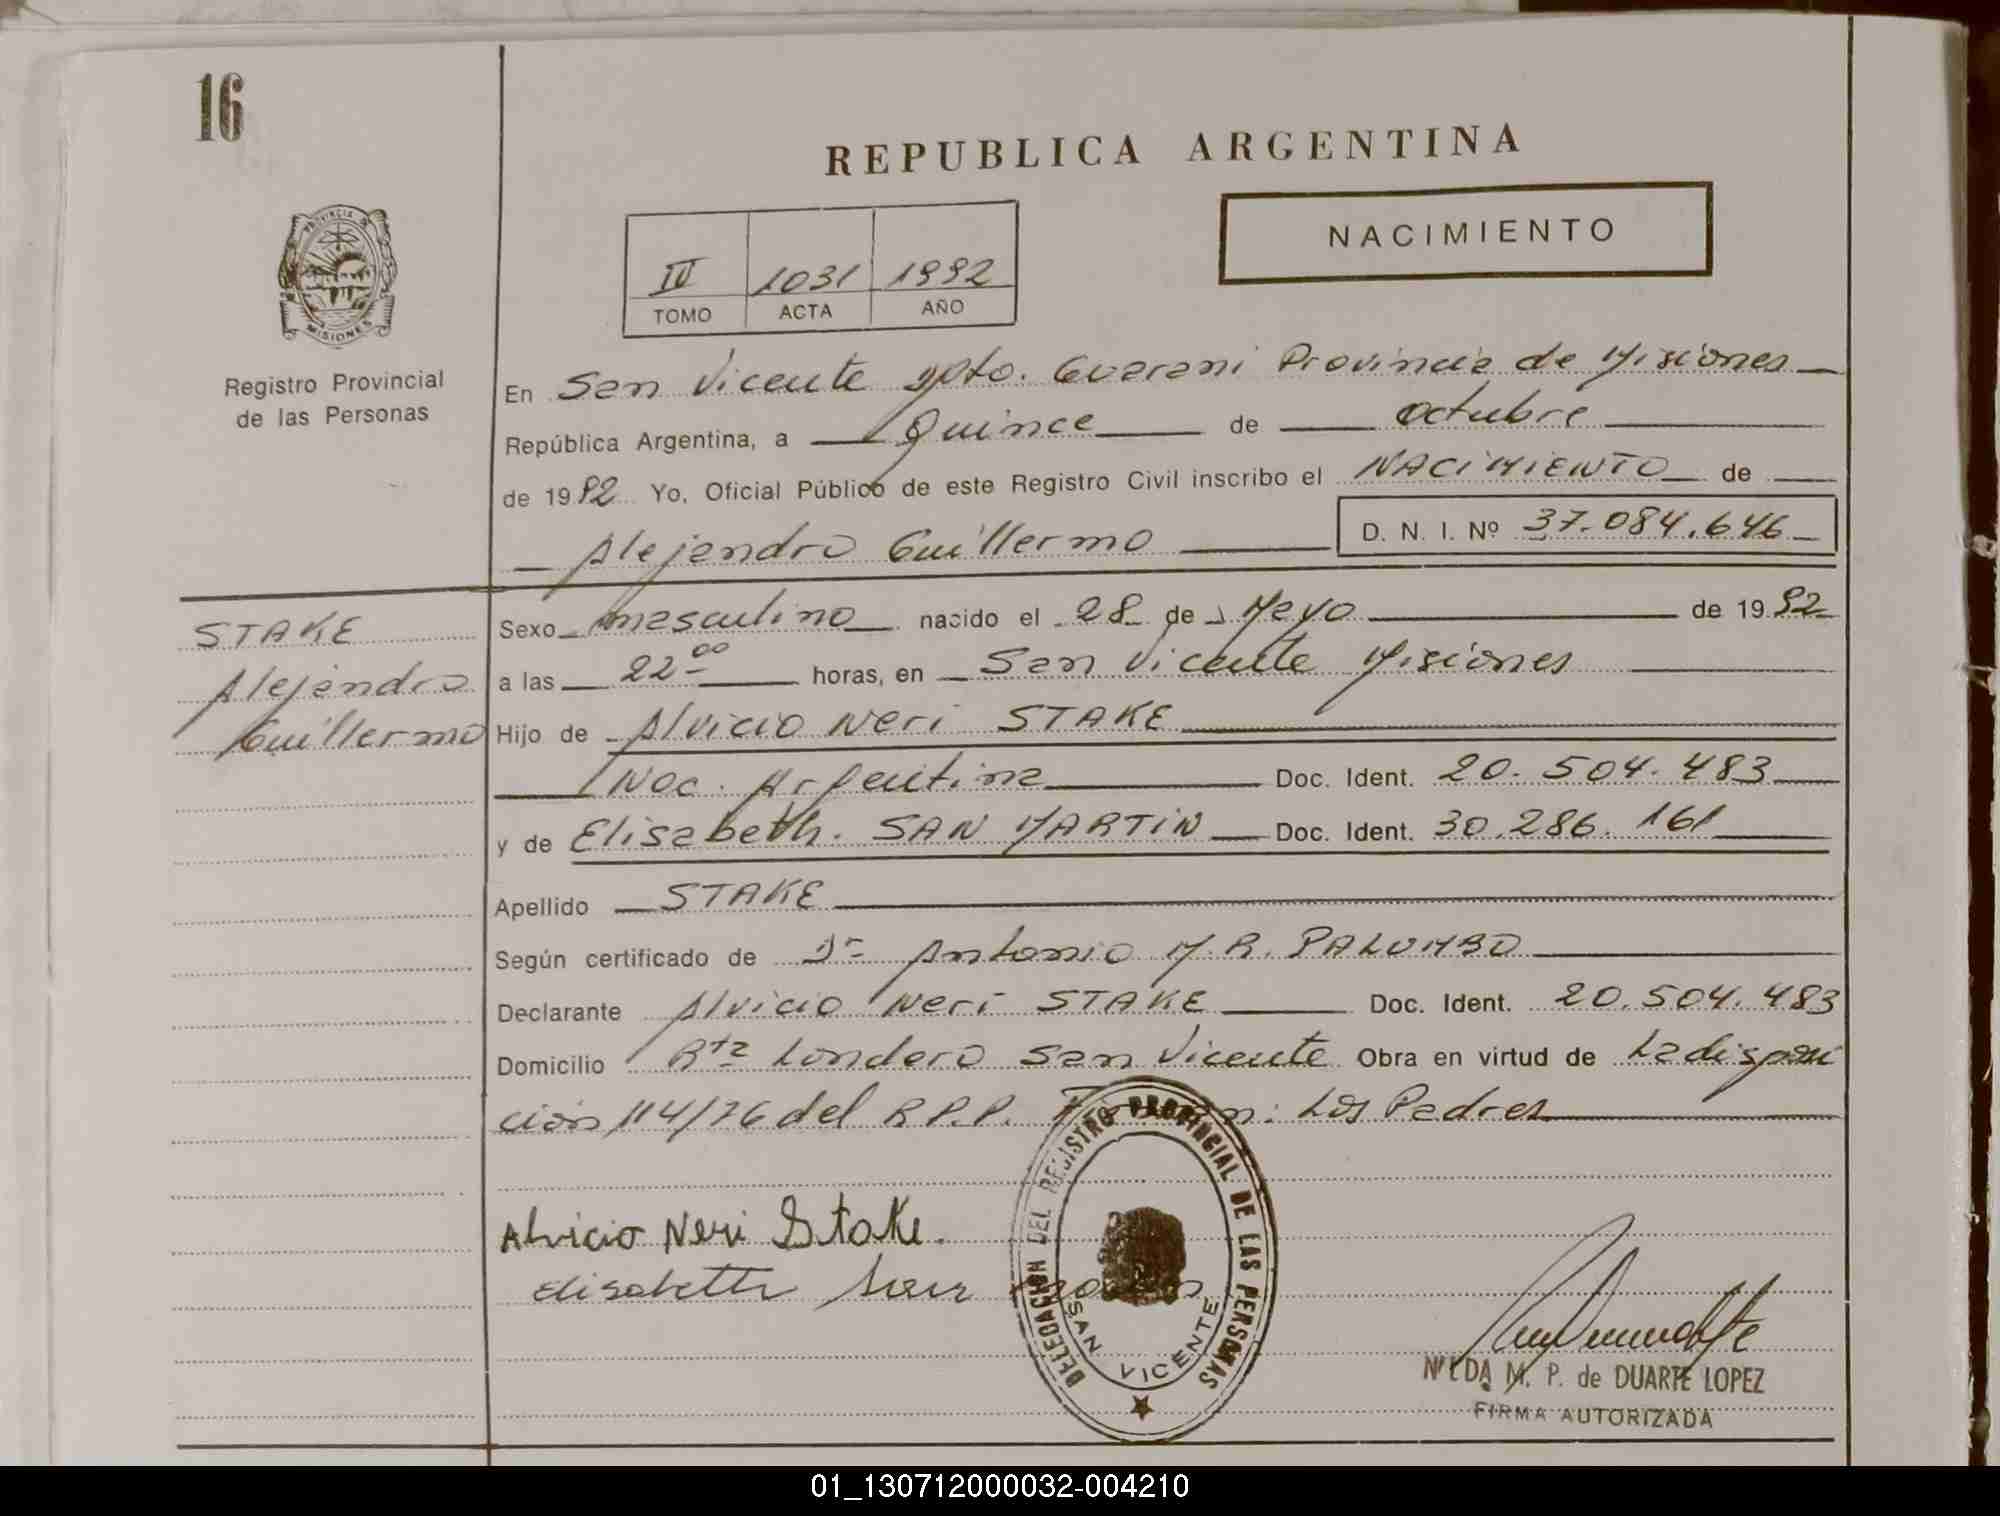 16
REPUBLICA ARGENTINA
NACIMIENTO
PROVINCIA DE
MISIONES
Registro Provincial
de las Personas
IV 1031 1992
TOMO ACTA AÑO
En San Vicente Dpto. Guarani Provincia de Misiones
República Argentina, a Quince de octubre
de 1992 Yo, Oficial Público de este Registro Civil inscribo el NACIMIENTO de
Alejandro Guillermo D. N. I. Nº 37.084.646
STAKE
Alejandro
Guillermo
Sexo masculino nacido el 28 de Mayo de 1992
a las 22 00 horas, en San Vicente Misiones
Hijo de Alvicio Neri STAKE
Nac. Argentina Doc. Ident. 20.504.483
y de Elisabeth. SAN MARTIN Doc. Ident. 30.286.161
Apellido STAKE
Según certificado de Dr Antonio M.R. PALUMBO
Declarante Alvicio Neri STAKE Doc. Ident. 20.504.483
Domicilio Rta Londero San Vicente Obra en virtud de La disposi
ción 114/76 del R.P.P. Los Padres
Alvicio Neri Stake.
Elisabeth San
DELEGACION DEL REGISTRO PROVINCIAL DE LAS PERSONAS
SAN VICENTE
M. P. de DUARTE LOPEZ
FIRMA AUTORIZADA
01_130712000032-004210